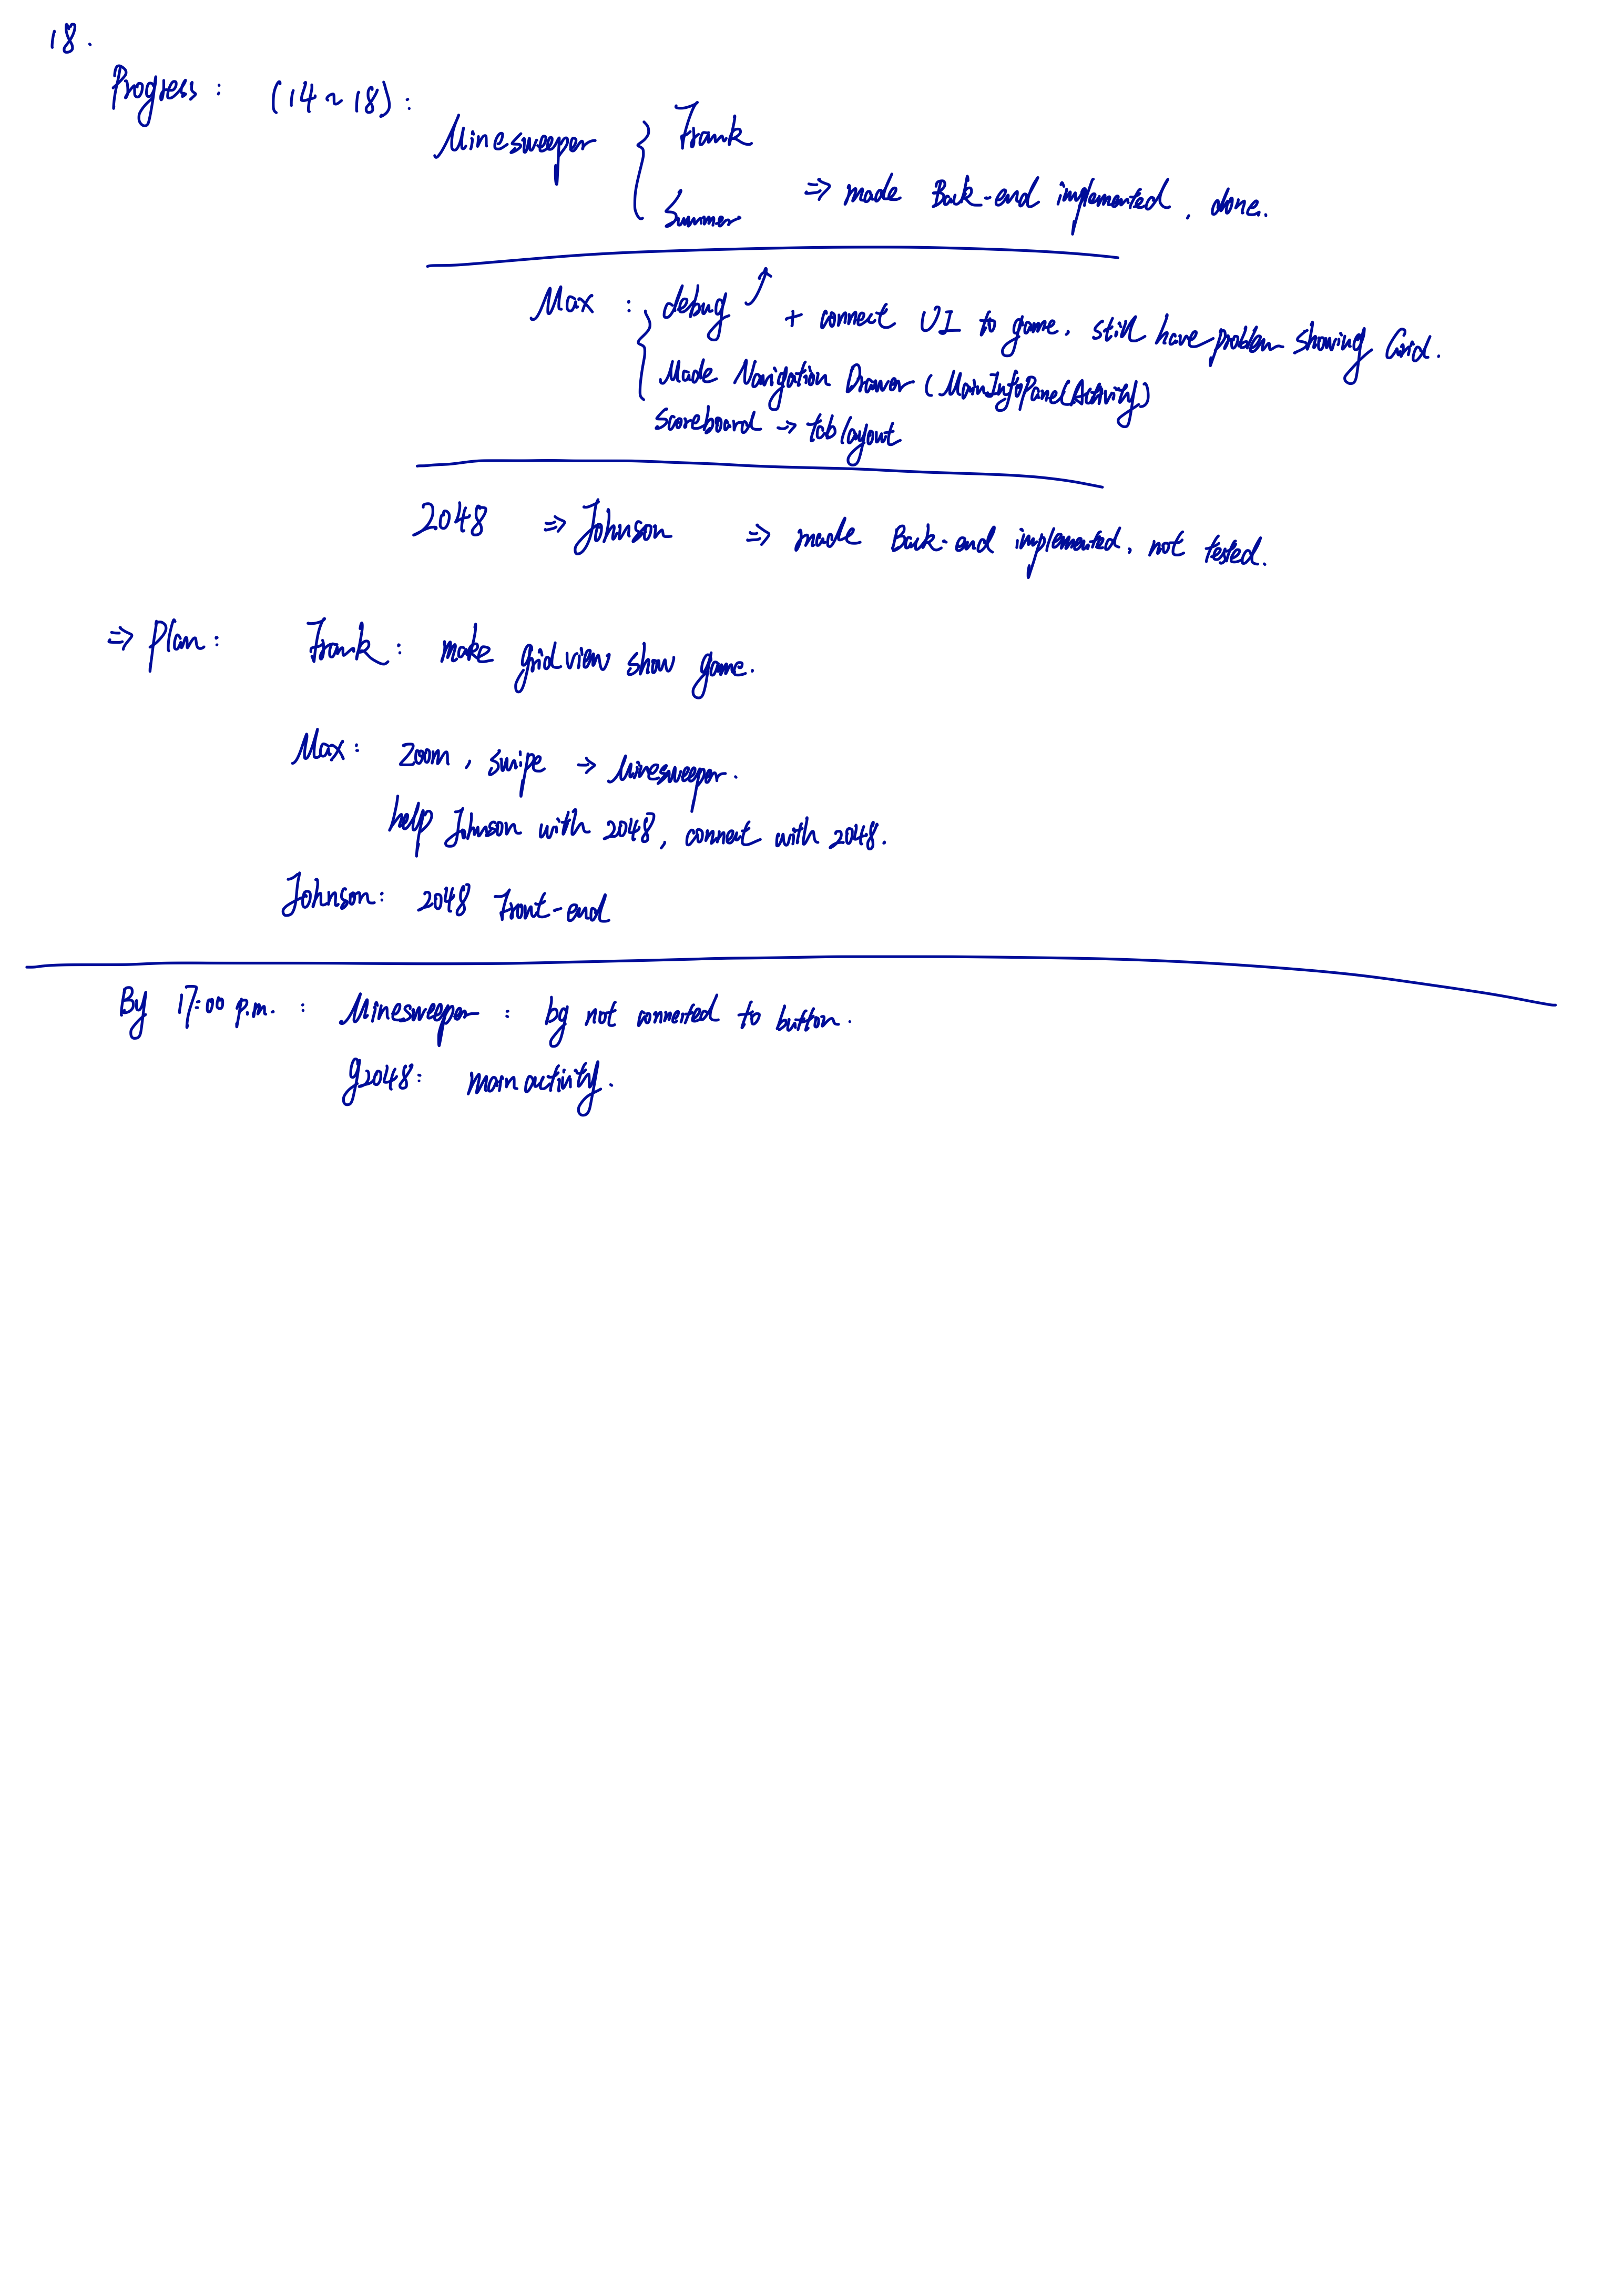 18.
Progress : (14~18) :
Minesweeper { Frank
Summer ⇒ made Back-end implemented, done.
Max : { debug ↑ + connect UI to game, still have problem showing Grid.
Made Navigation Drawer (MainInfoPanelActivity)
Scoreboard → tab layout
2048 ⇒ Johnson ⇒ made Back-end implemented, not tested.
⇒ Plan : Frank : make gridview show game.
Max : zoom, swipe → Minesweeper.
help Johnson with 2048, connect with 2048.
Johnson : 2048 Front-end
By 17:00 p.m. : Minesweeper : bg not connected to button.
g2048 : main activity.